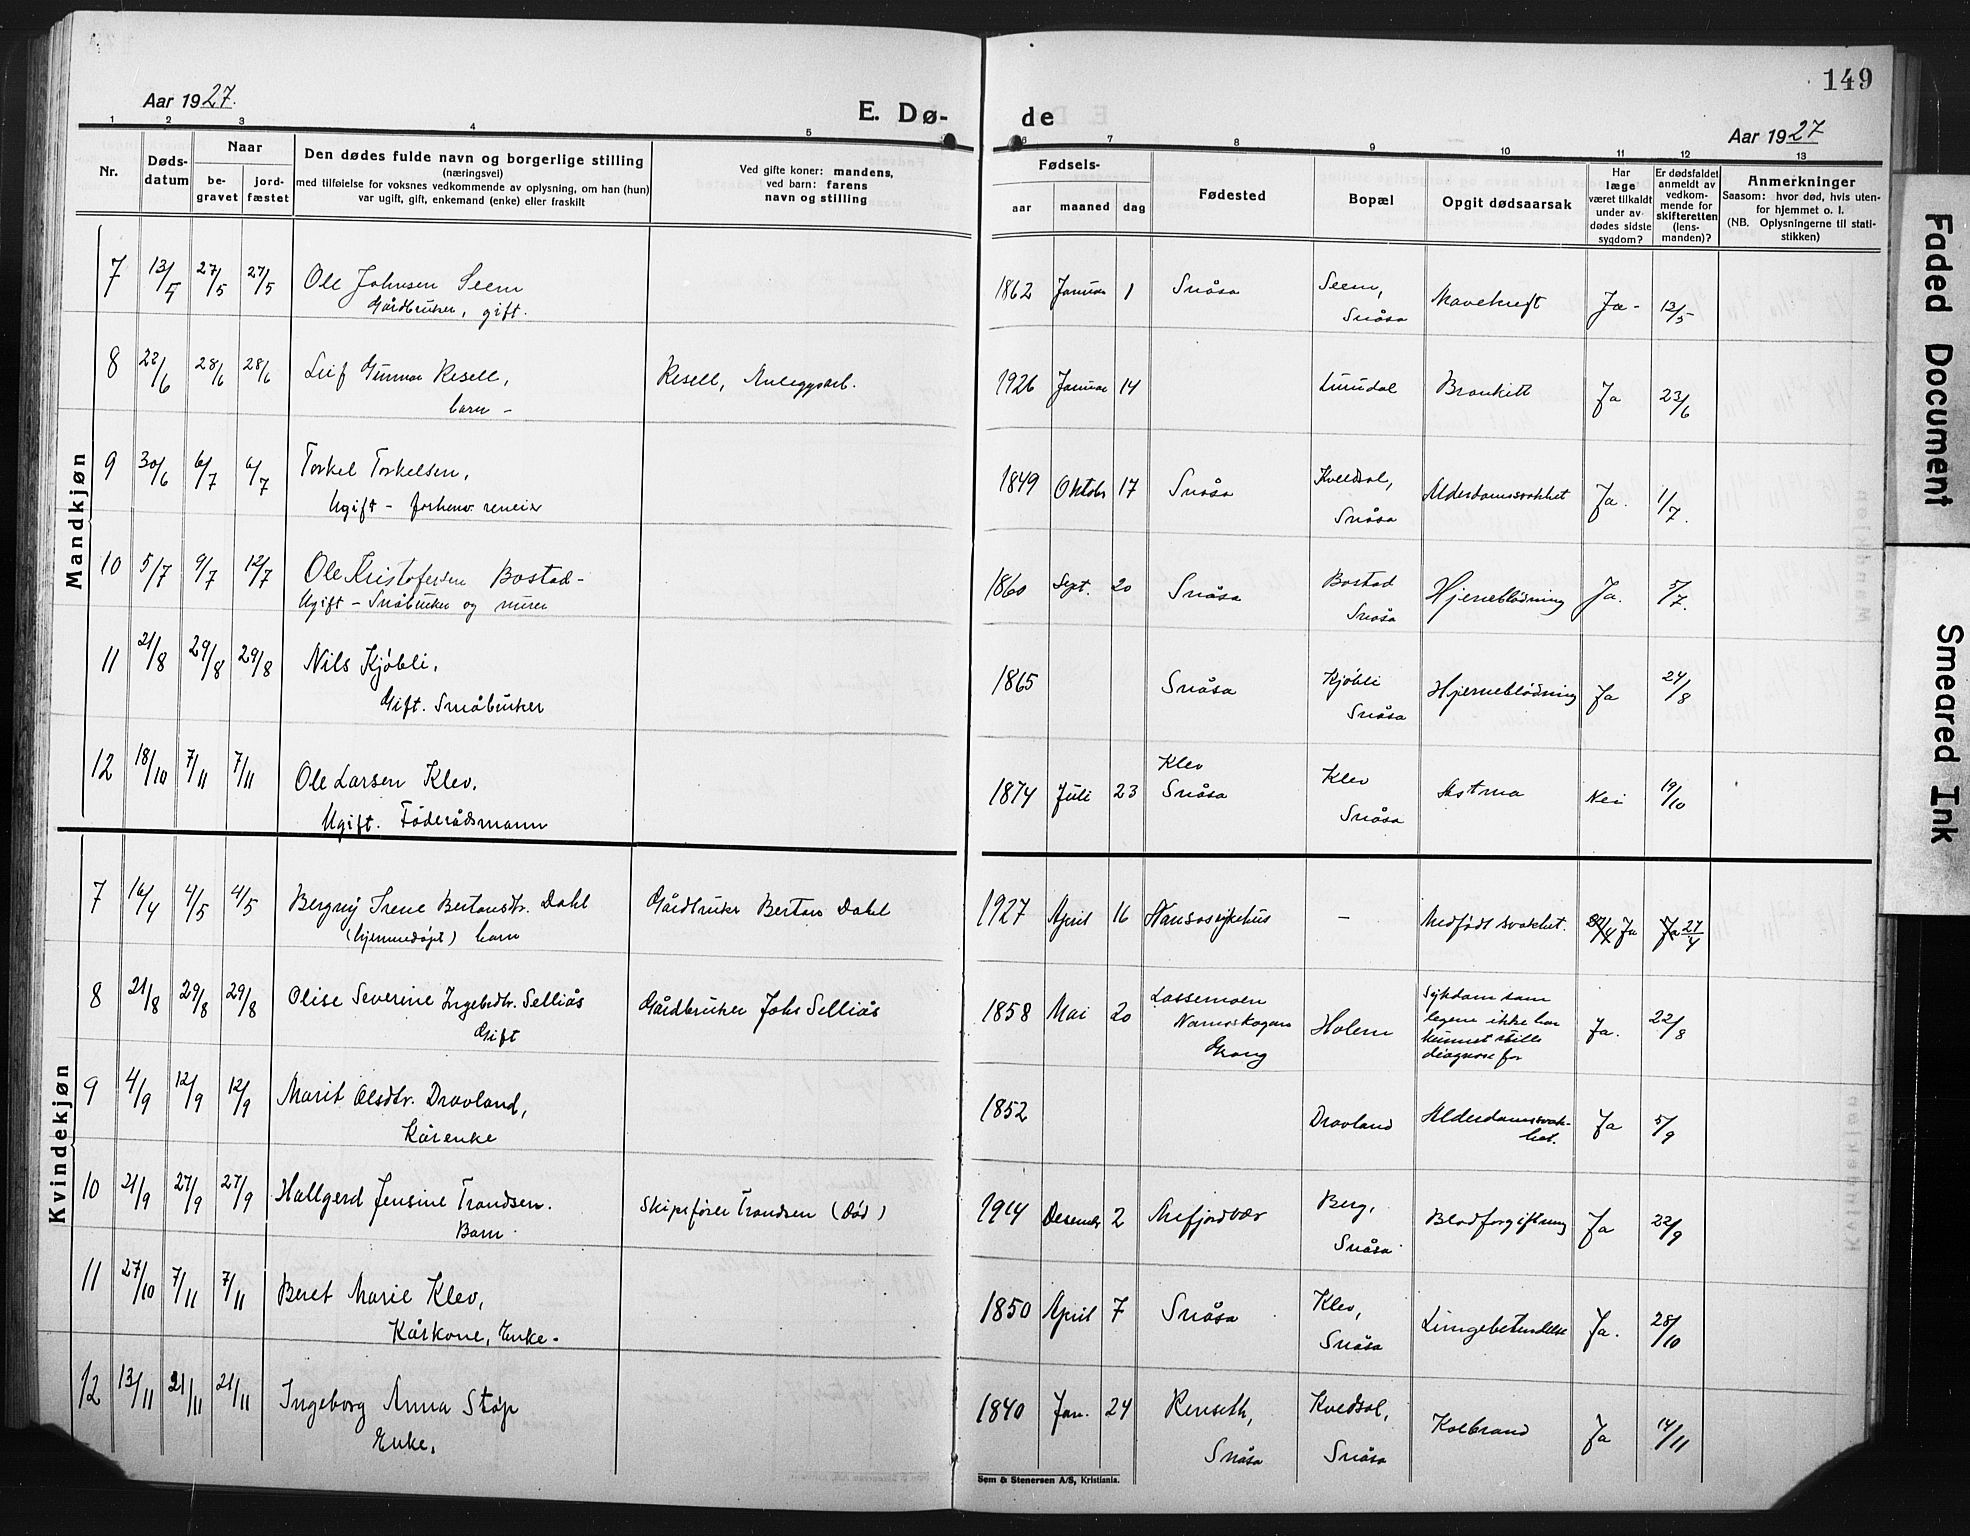 149
Aar 1927.
E. Dø-
de
Aar 1927
1 2 3 4 5
6 7 8 9 10 11 12 13
Nr.
Døds-
datum
Naar
be-
gravet
jord-
fæstet
Den dødes fulde navn og borgerlige stilling
(næringsvei)
med tilføielse for voksnes vedkommende av oplysning, om han (hun)
var ugift, gift, enkemand (enke) eller fraskilt
Ved gifte koner: mandens,
ved barn: farens
navn og stilling
Fødsels-
aar maaned dag
Fødested
Bopæl
Opgit dødsaarsak
Har
læge
været tilkaldt
under av-
dødes sidste
sygdom?
Er dødsfaldet
anmeldt av
vedkom-
mende for
skifteretten
(lens-
manden)?
Anmerkninger
Saasom: hvor død, hvis uten-
for hjemmet o. l.
(NB. Oplysningerne til stati-
stikken)
Mandkjøn
7 13/5 27/5 27/5 Ole Johnsen Seem 1862 Januar 1 Snåsa Seem, Mavekreft Ja - 13/5
Gårdbruker, gift. Snåsa
8 22/6 28/6 28/6 Leif Gunnar Resell, Resell, Anleggsarb. 1926 Januar 14 Luundal Bronkitt Ja 23/6
barn -
9 30/6 6/7 6/7 Torkel Torkelsen, 1849 Oktober 17 Snåsa Kvedsol, Alderdomssvakhet Ja. 1/7.
Ugift - forhenv. reneier Snåsa
10 5/7 9/7 12/7 Ole Kristofersen Bostad - 1860 Sept. 20 Snåsa Bostad Hjerneblödning Ja. 5/7.
Ugift - Småbruker og murer Snåsa
11 21/8 29/8 29/8 Nils Kjöbli, 1865 Snåsa Kjöbli Hjerneblödning Ja 24/8
Gift. Småbruker Snåsa
12 18/10 7/11 7/11 Ole Larsen Klev, 1874 Juli 23 Klev Klev Astma Nei 19/10
Ugift. Föderådsmann Snåsa Snåsa
Kvindekjøn
7 16/4 4/5 4/5 Bergny Irene Bertonsdtr. Dahl Gårdbruker Berton Dahl 1927 April 16 Namsossykehus - Medfödt svakhet. Ja 27/4
(hjemmedöpt) barn
8 21/8 29/8 29/8 Olise Severine Ingebrdtr. Selliås Gårdbruker Johs Selliås 1858 Mai 20 Lassemoen Holem Sykdom som Ja. 22/8
Gift Namsskogan legene ikke har
Grong kunnet stille
diagnose for
9 4/9 12/9 12/9 Marit Olsdtr. Dravland, 1852 Dravland Alderdomssvak- Ja 5/9
Kårenke het.
10 21/9 27/9 27/9 Hallgerd Jensine Trondsen. Skipsförer Trondsen (Död) 1914 Desember 2 Mefjordvær Berg, Blodforgiftning Ja 22/9
Barn. Snåsa
11 27/10 7/11 7/11 Beret Marie Klev, 1850 April 7 Snåsa Klev, Lungebetendelse Ja. 28/10
Kårkone, Enke - Snåsa
12 13/11 21/11 21/11 Ingeborg Anna Stöp 1840 Jan. 24 Renseth, Kvedsol, Kolbrand Ja 14/11
Enke. Snåsa Snåsa
Sem & Stenersen A/S, Kristiania.
Faded Document
Smeared Ink